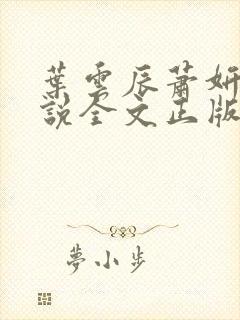 葉雲辰蕭妍
說全文正版
夢小步